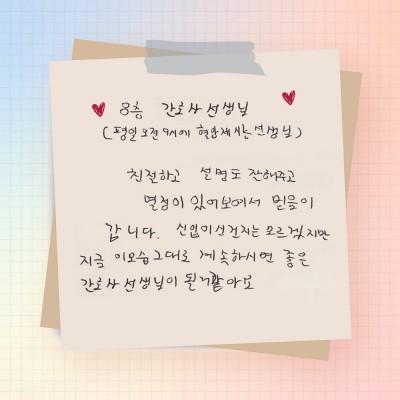 8층 간호사 선생님
(평일 오전 9시에 혈압재시는 선생님)
친절하고 설명도 잘해주고
열정이 있어보여서 믿음이
갑니다. 신입이신건지는 모르겠지만
지금 이모습 그대로 계속하시면 좋은
간호사 선생님이 될거 같아요